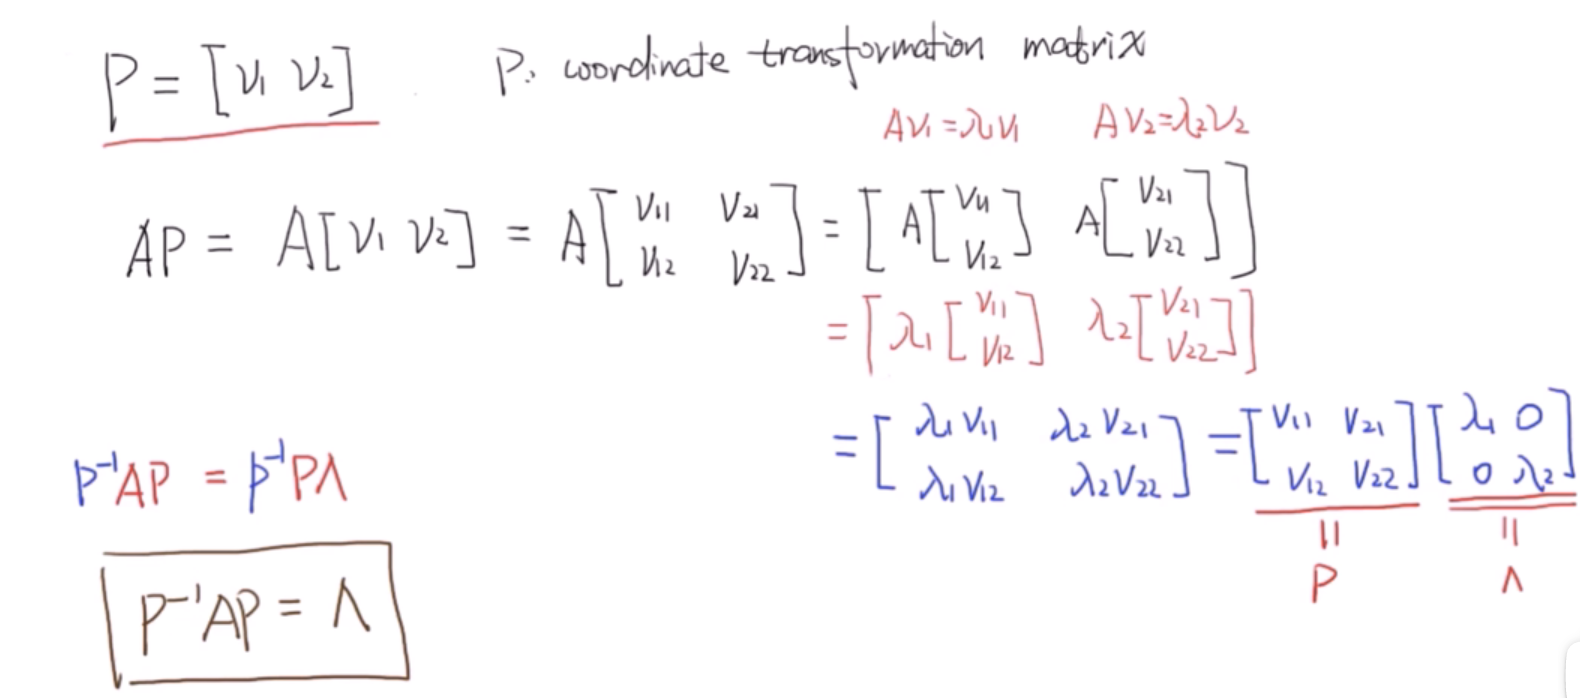 P = [v₁ v₂] P: coordinate transformation matrix
Av₁ = λ₁v₁ Av₂ = λ₂v₂
AP = A[v₁ v₂] = A[v₁₁ v₂₁; v₁₂ v₂₂] = [A[v₁₁; v₁₂] A[v₂₁; v₂₂]]
= [λ₁[v₁₁; v₁₂] λ₂[v₂₁; v₂₂]]
= [λ₁v₁₁ λ₂v₂₁; λ₁v₁₂ λ₂v₂₂] = [v₁₁ v₂₁; v₁₂ v₂₂][λ₁ 0; 0 λ₂]
|| ||
P Λ
P⁻¹AP = P⁻¹PΛ
P⁻¹AP = Λ